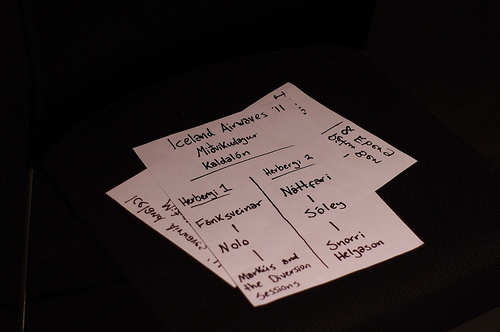 Iceland Airwaves '11
Miðvikudagur
Kaldalón
Herbergi 1
Fönksveinar
Nolo
Markús and
the Diversion
Sessions
Herbergi 2
Náttfari
Sóley
Snorri
Helgason